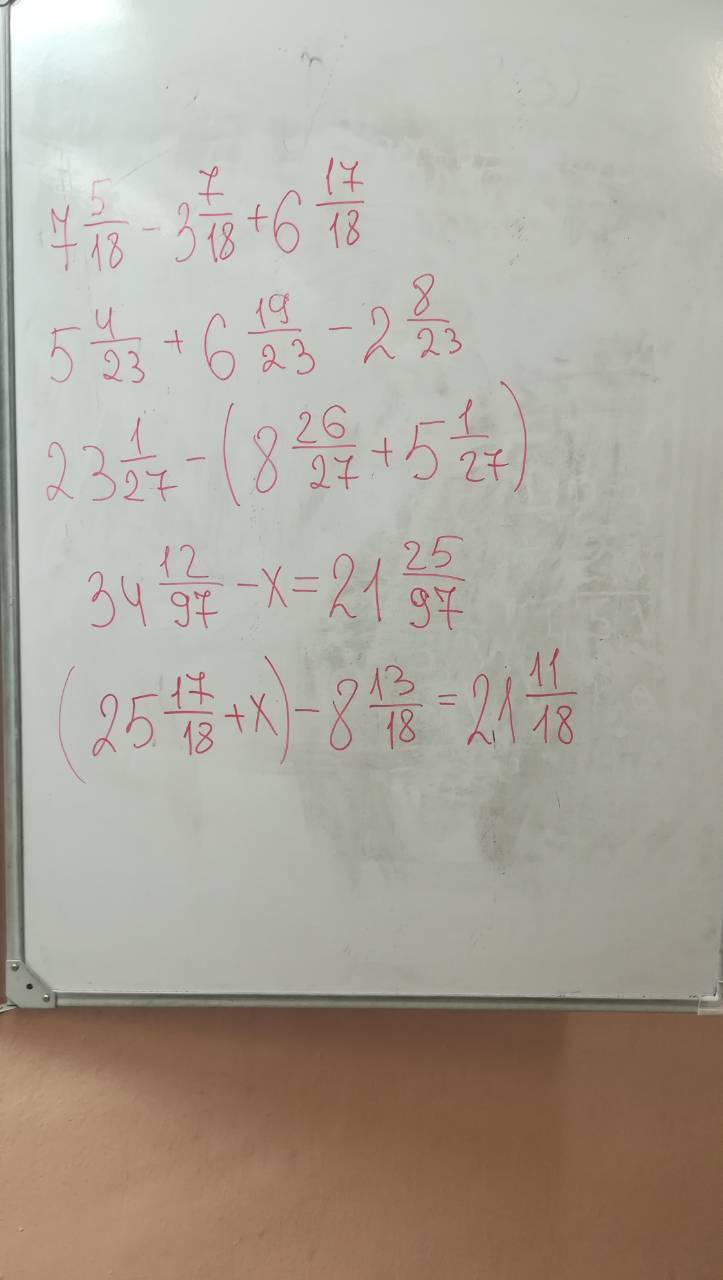 7 5/18 - 3 7/18 + 6 17/18
5 4/23 + 6 19/23 - 2 8/23
23 1/27 - (8 26/27 + 5 1/27)
34 12/97 - x = 21 25/97
(25 17/18 + x) - 8 13/18 = 21 11/18